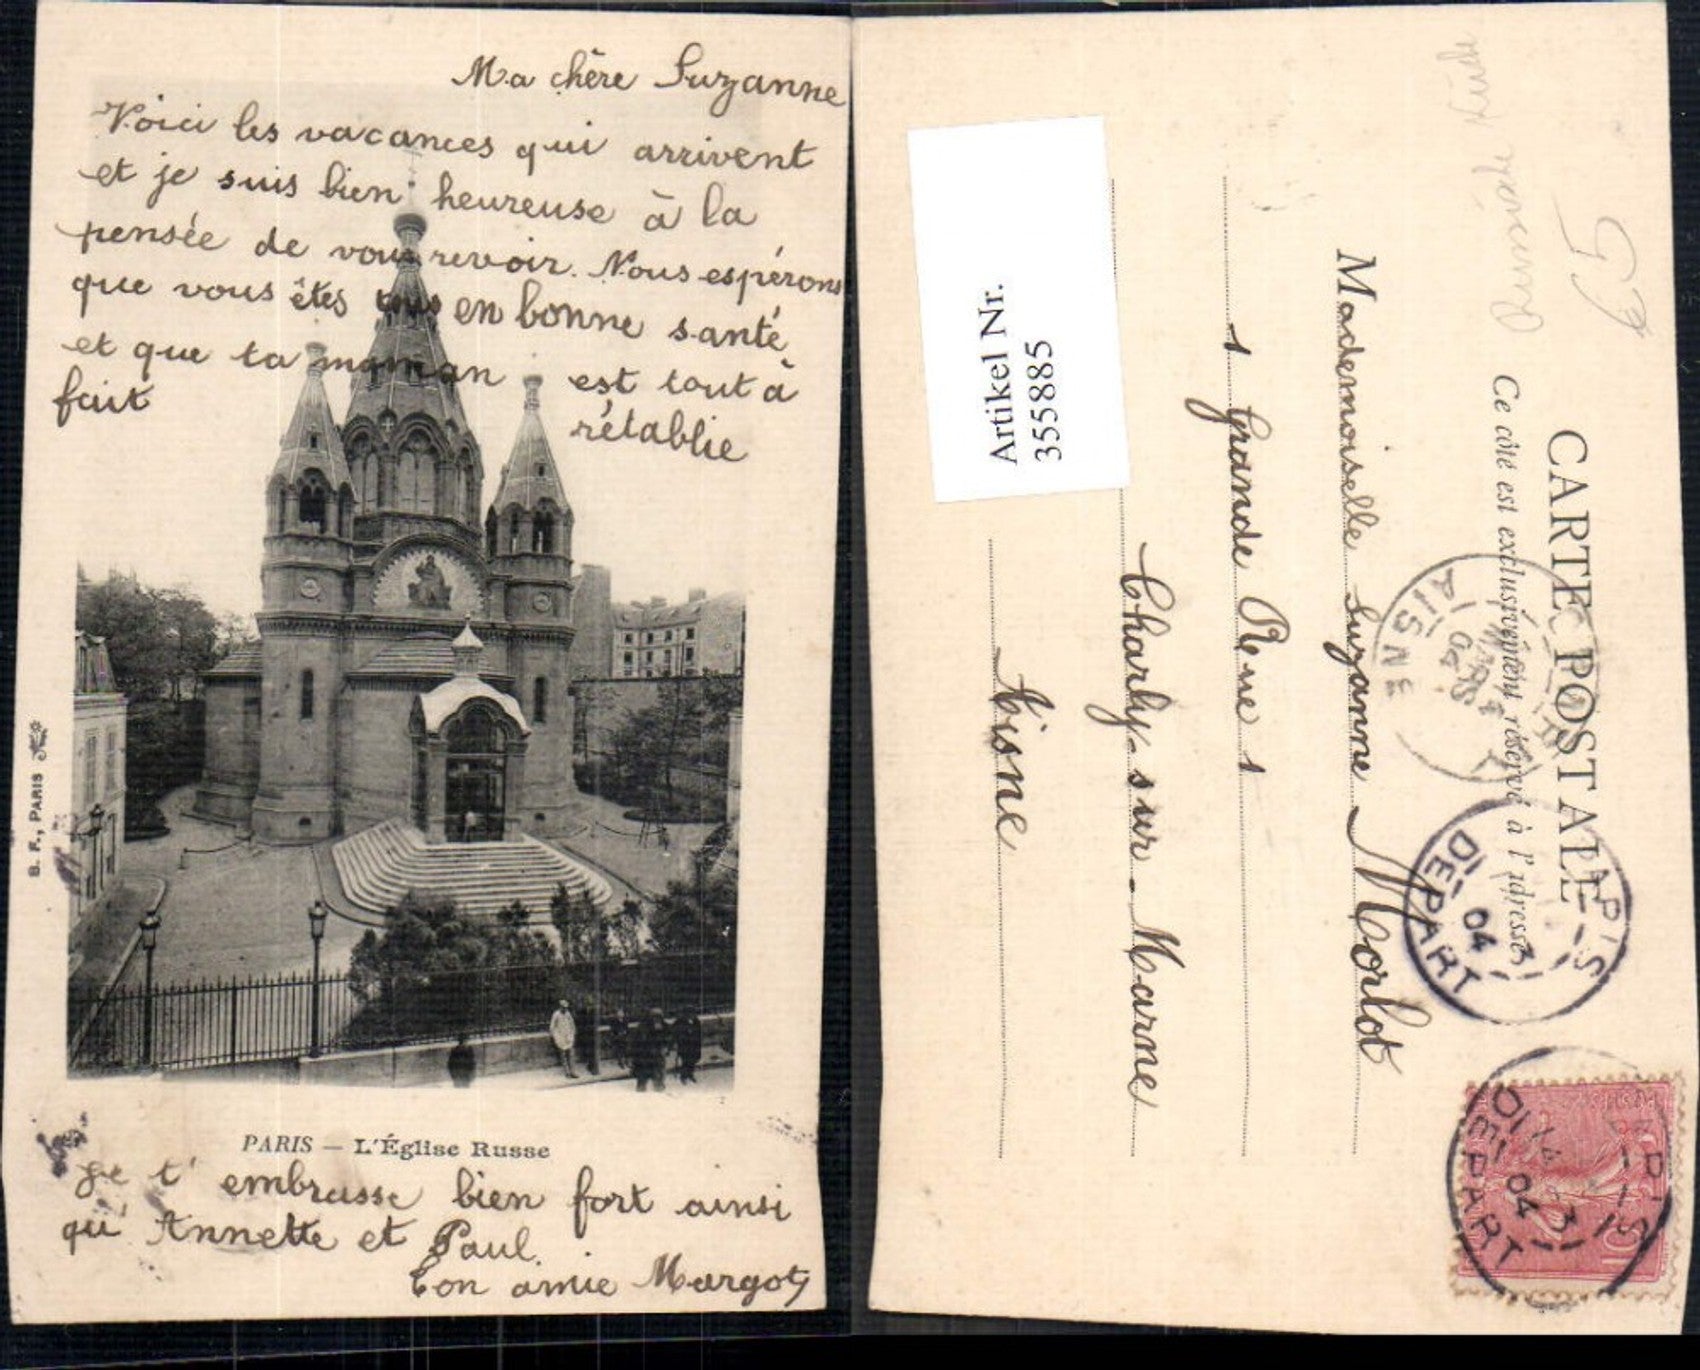 Ma chère Suzanne
Voici les vacances qui arrivent
et je suis bien heureuse à la
pensée de vous revoir. Nous espérons
que vous êtes tous en bonne santé
et que ta maman est tout à
fait rétablie
B. F., PARIS
PARIS — L'Église Russe
Je t'embrasse bien fort ainsi
qu'Annette et Paul.
Ton amie Margot
CARTE POSTALE
Ce côté est exclusivement réservé à l'adresse
Mademoiselle Suzanne Morlot
1 Grande Rue 1
Charly-sur-Marne
Aisne
Artikel Nr.
355885
€5
AISNE
04
DEPART
04
DEPART
04
10